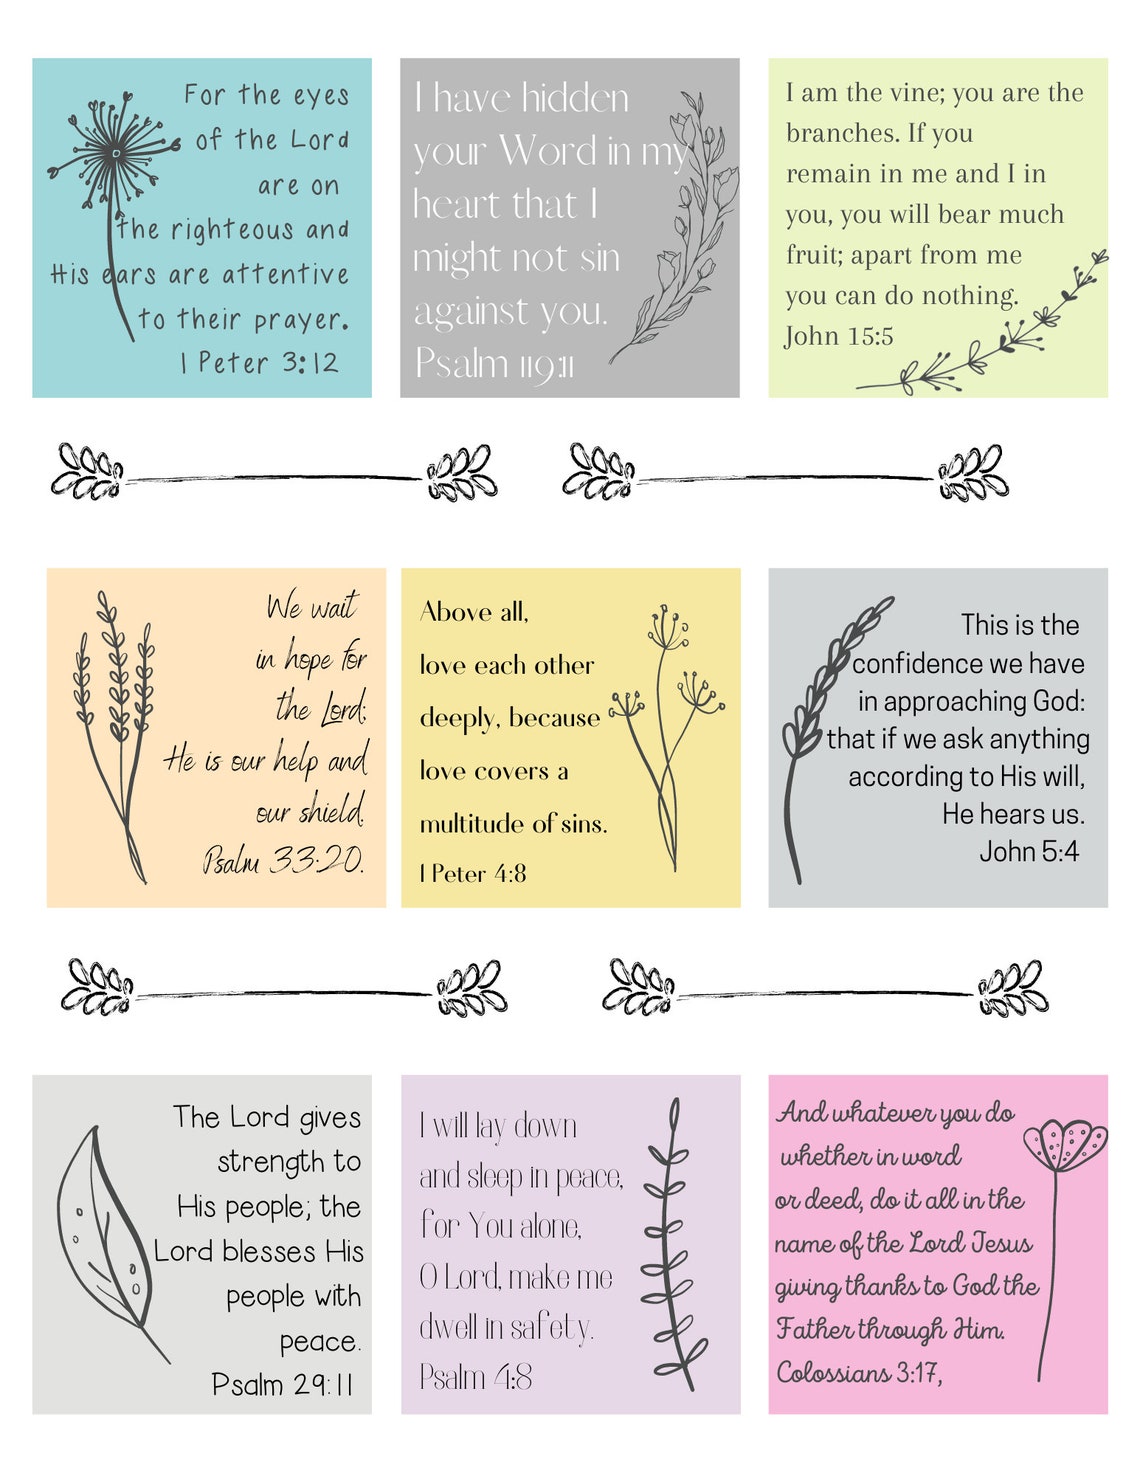 For the eyes
of the Lord
are on
the righteous and
His ears are attentive
to their prayer.
1 Peter 3:12
I have hidden
your Word in my
heart that I
might not sin
against you.
Psalm 119:11
I am the vine; you are the
branches. If you
remain in me and I in
you, you will bear much
fruit; apart from me
you can do nothing.
John 15:5
We wait
in hope for
the Lord;
He is our help and
our shield.
Psalm 33:20.
Above all,
love each other
deeply, because
love covers a
multitude of sins.
1 Peter 4:8
This is the
confidence we have
in approaching God:
that if we ask anything
according to His will,
He hears us.
John 5:4
The Lord gives
strength to
His people; the
Lord blesses His
people with
peace.
Psalm 29:11
I will lay down
and sleep in peace,
for You alone,
O Lord, make me
dwell in safety.
Psalm 4:8
And whatever you do
whether in word
or deed, do it all in the
name of the Lord Jesus
giving thanks to God the
Father through Him.
Colossians 3:17,